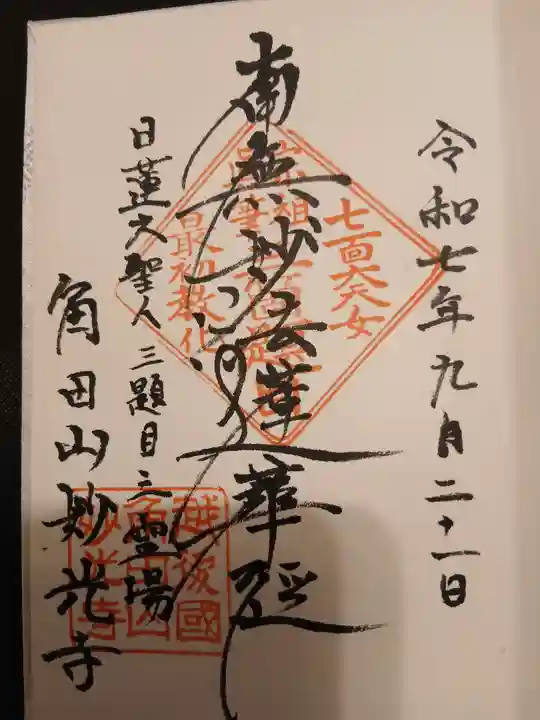 令和七年九月二十一日
南無妙法蓮華経
日蓮大聖人三題目之霊場
角田山妙光寺
七面大天女
最初教化
越後國
角田山
妙光寺